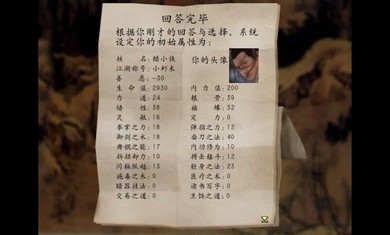 回答完毕
根据你刚才的回答与选择，系统
设定你的初始属性为：
姓 名：醋小侠
你的头像
江湖称号：小虾米
善 恶：-30
生 命 值：2930 内 力 值：200
力 道：24 根 骨：39
悟 性：38 福 缘：32
灵 敏：16 定 力：0
拳掌之力：18 弹指之力：12
御剑之术：18 奇刀之法：40
17 内功修为：10
拆招卸力：10 搏击格斗：12
闪躲纵跃：13 轻身之法：23
施毒之术：0 医疗之术：0
暗器技法：0 读书写字：0
交易之道：0 烹饪之道：0